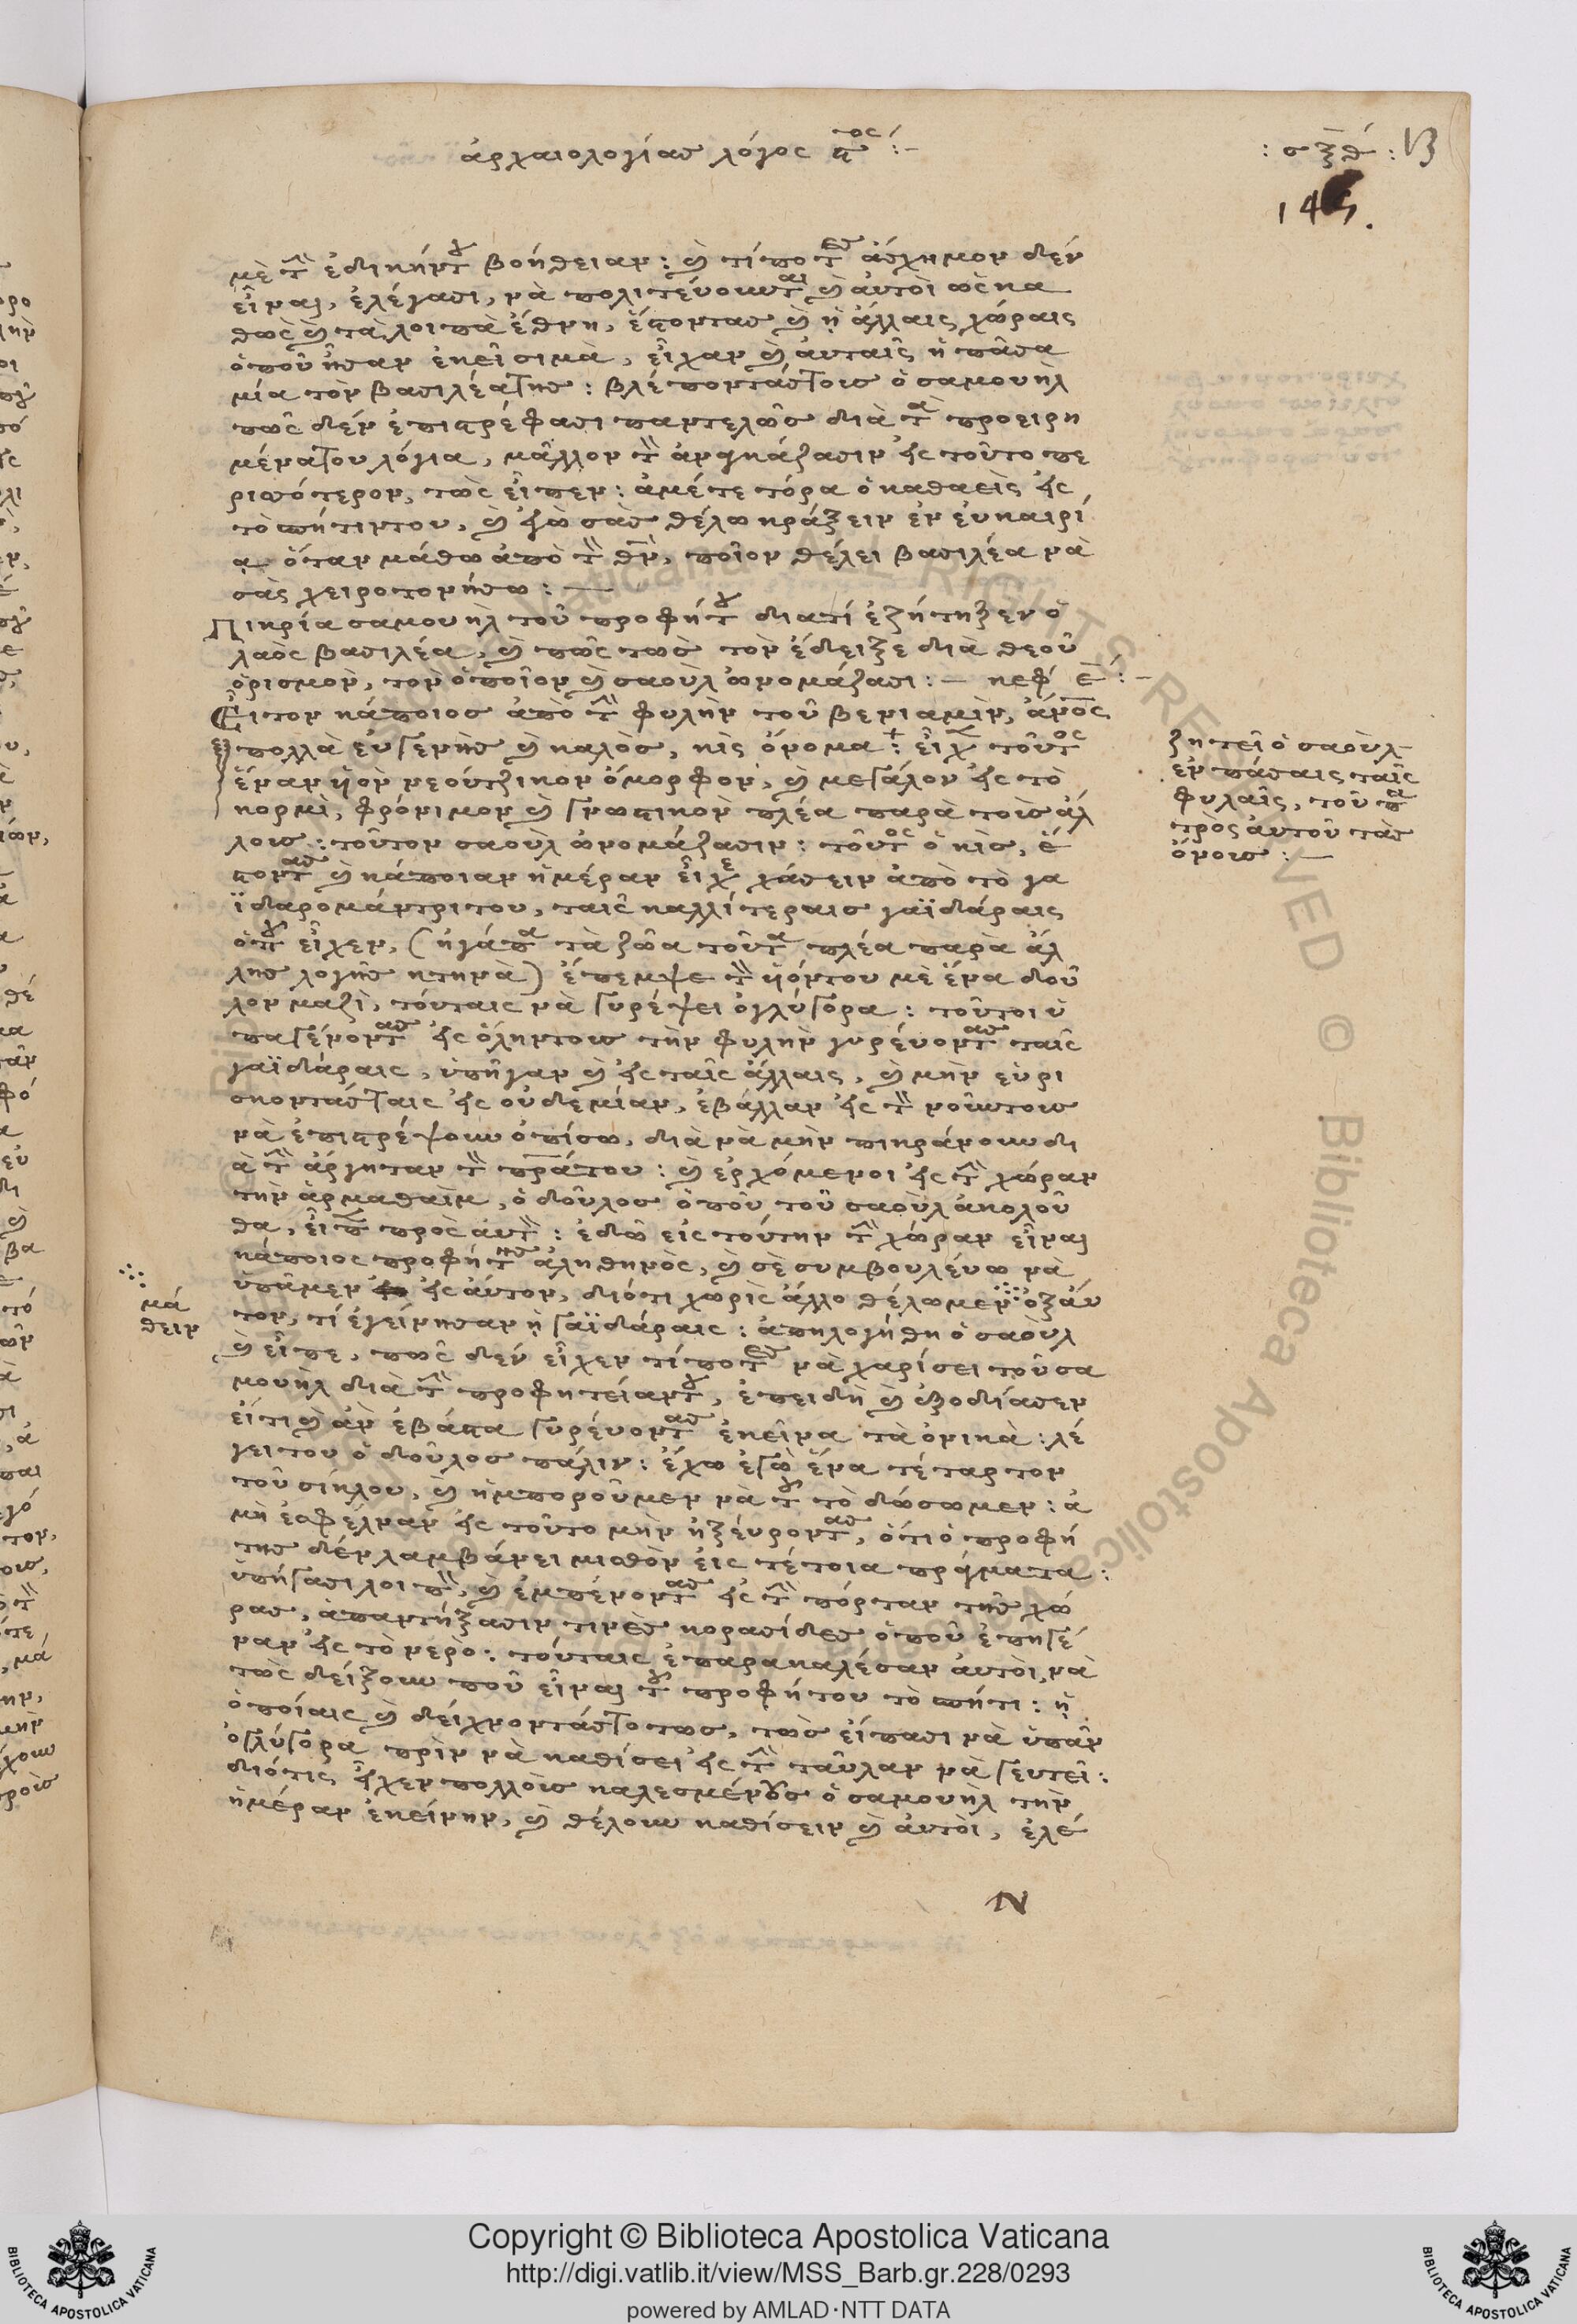 ἀρχαιολογίας λόγος ϛτος :-
: σξθ :
145.
μὲ τὴν ἐδικήντου βοήθειαν : καὶ τίποτες ἄσχημον δέν
εἶναι, ἐλέγασι, νὰ πολιτεύουνται καὶ ἀυτοὶ ὡς κα
θὼς καὶ τὰ λοιπὰ ἔθνη, ἔστοντας καὶ ἡ ἄλλαις χώραις
ὁποῦ ἦσαν ἐκεῖ σιμὰ, εἶχαν καὶ ἀυταῖς ἡ πᾶσα
μία τὸν βασιλέατης : βλέποντάστους ὁ σαμουὴλ
πῶς δέν ἐπιστρέφασι παντελῶς διὰ τὰ προειρη
μένατου λόγια, μᾶλλον τὸν ἀναγκάζασιν εἰς τοῦτο πε
ρισότερον, τὼς εἶπεν : ἀμέτε τόρα ὁ καθαεὶς εἰς
τὸ σπήτιντου, καὶ ἐγὼ σᾶς θέλω κράξειν ἐν ἐυκαιρί
α ὅταν μάθω ἀπὸ τὸν θν, ποῖον θέλει βασιλέα νὰ
σᾶς χειροτονήσω : —
Πικρία σαμουὴλ τοῦ προφήτου διατί ἐζήτηξεν ὁ
λαὸς βασιλέα, καὶ πῶς τως τὸν ἔδειξε διὰ θεοῦ
ὁρισμὸν, τον ὁποῖον καὶ σαοὺλ ὠνομάζασι : — κεφ έ : —
Εἶτον κάποιος ἀπὸ τὴν φυλὴν τοῦ βενιαμὶν, ἄνος
πολλὰ ἐυγενὴς καὶ καλὸς, κὶς ὄνομα + : εἶχε τοῦτος
ἕναν ὑιὸν νεούτζικον ὄμορφον, καὶ μεγάλον εἰς τὸ
κορμὶ, φρόνιμον καὶ γνωστικὸν πλέα παρὰ τοὺς ἄλ
λους : τοῦτον σαοὺλ ὠνομάζασιν : τοῦτος ὁ κὶς, ἔ
στοντας καὶ κάποιαν ἡμέραν εἶχε χάσειν ἀπὸ τὸ γα
ϊδαρομάντριτου, ταῖς καλλίτεραις γαϊδάραις
ὁποῦ εἶχεν, (ἠγάπα τὰ ζῶα τοῦτα πλέα παρὰ ἄλ
λης λογῆς κτηνὰ) ἔπεμψε τὸν ὑιόντου μὲ ἕνα δοῦ
λον μαζὶ, τόυταις νὰ γυρέψει ὀγλύγορα : τοῦτοι ὑ
παγένοντας εἰς ὅληντους τὴν φυλὴν γυρέυοντας ταῖς
γαϊδάραις, ὑπῆγαν καὶ εἰς ταῖς ἄλλαις, καὶ μὴν εὑρί
σκοντάσταις εἰς οὐδεμίαν, ἐβάλλαν εἰς τὸν νοῦντους
νὰ ἐπιστρέψουν ὀπίσω, διὰ νὰ μὴν πικράνουν δι
ὰ τὴν ἄργηταν τὸν πρᾶτου : καὶ ἐρχόμενοι εἰς τὴν χώραν
τὴν ἁρμαθαὶμ, ὁ δοῦλος ὁποῦ τοῦ σαοὺλ ἀκολοῦ
θα, εἶπε πρὸς ἀυτὸν : ἐδῶ εἰς τούτην τὴν χώραν εἶναι
κάποιος προφήτης ἀληθηνὸς, καὶ σὲ συμβουλεύω νὰ
ὑπᾶμεν εἰς ἀύτον, διότι χωρὶς ἄλλο θέλωμεν ⁘ ὀξάυ
τον, τί ἐγείνησαν ἡ γαϊδάραις : ἀπηλογήθη ὁ σαοὺλ
καὶ εἶπε, πῶς δεν εἶχεν τίποτες νὰ χαρίσει τοῦ σα
μουὴλ διὰ τὴν προφητείαντου, ἐπειδὴ καὶ ἐξοδίασεν
εἴτι καὶ ἂν ἐβάστα γυρέυοντας ἐκεῖνα τὰ ὀνικὰ : λέ
γει του ὁ δοῦλος πάλιν : ἔχω ἐγὼ ἕνα τέταρτον
τοῦ σίκλου, καὶ ἠμποροῦμεν νὰ τοῦ τὸ δώσωμεν : ἀ
μὴ ἐσφέλναν εἰς τοῦτο μὴν ἠξέυροντας, ὅτι ὁ προφή
της δέν λαμβάνει μισθὸν εἰς τέτοια πράγματα :
ὑπήγασι λοιπὸν, καὶ ἐμπένοντας εἰς τὴν πόρταν τῆς χώ
ρας, ἀπαντήξασιν τινὲς κορασίδες ὁποῦ ἐπηγέ
ναν εἰς τὸ νερὸ : τόυταις ἐπαρακαλέσαν ἀυτοὶ, νὰ
τὼς δείξουν ποῦ εἶναι τοῦ προφήτου τὸ σπήτι : ἡ
ὁποίαις καὶ δείχνοντάστοτως, τὼς εἴπασι νὰ ὑπᾶν
ὀγλύγορα πρὶν νὰ καθίσει εἰς τὴν ταῦλαν νὰ γευτεῖ :
διότις εἶχεν πολλοὺς καλεσμένους ὁ σαμουὴλ τὴν
ἡμέραν ἐκείνην, καὶ θέλουν καθίσειν καὶ ἀυτοὶ, ἐλέ
ζητεῖ ὁ σαοὺλ
ἐν πάσαις ταῖς
φυλαῖς, τοῦ πα
τρὸς ἀυτοῦ τὰς
ὄνους : —
⁘ μά
θειν
N
Copyright © Biblioteca Apostolica Vaticana
http://digi.vatlib.it/view/MSS_Barb.gr.228/0293
powered by AMLAD·NTT DATA
BIBLIOTECA APOSTOLICA VATICANA
BIBLIOTECA APOSTOLICA VATICANA